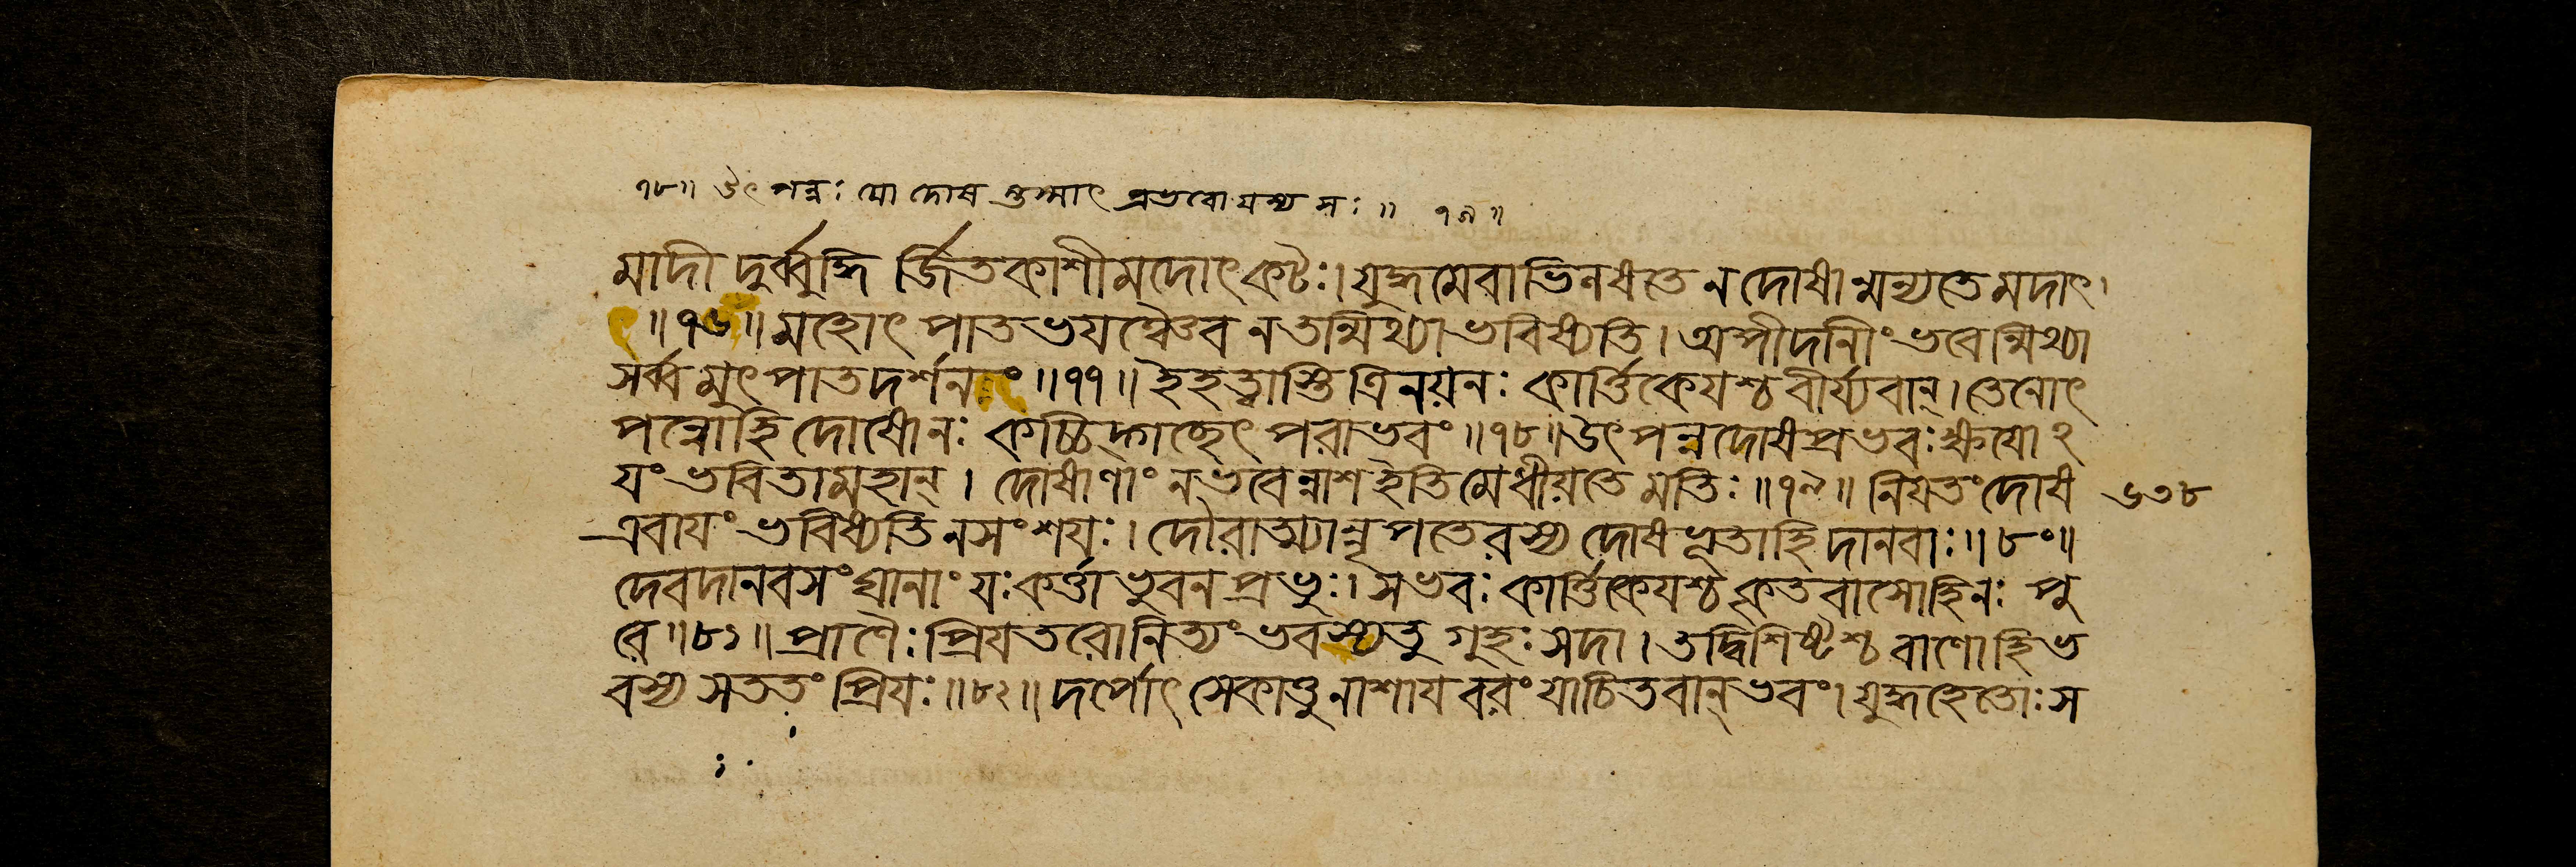 ৭৮॥ উৎপন্নঃ যো দোষ স্তস্মাৎ প্রভবো যস্য সঃ॥ ৭৯॥
মাদী দুর্ব্বুদ্ধি র্জিতকাশীমদোৎকটঃ। যুদ্ধমেবাভিলষতে ন দোষান্মন্যতে মদাৎ।
ৎ॥৭৬॥ মহোৎপাতভযঞ্চৈব ন তন্মিথ্যা ভবিষ্যতি। অপীদানীং ভবেন্মিথ্যা
সর্ব্বমুৎপাতদর্শনং॥৭৭॥ ইহ ত্বাস্তি ত্রিনয়নঃ কার্ত্তিকেযশ্চ বীর্য্যবান্। তেনোৎ
পন্নোহি দোষোনঃ কচ্চিদ্গচ্ছেৎ পরাভবং॥৭৮॥ উৎপন্নদোষপ্রভবঃ ক্ষযোঽ
যং ভবিতামহান্। দোষাণাং ন ভবেন্নাশ ইতি মেধীয়তে মতিঃ॥৭৯॥ নিযতং দোষ ৬৩৮
এবাযং ভবিষ্যতি নসংশযঃ। দৌরাত্ম্যান্নৃপতেরস্য দোষভূতাহি দানবাঃ॥৮০॥
দেবদানবসংঘানাং যঃ কর্ত্তা ভুবনপ্রভুঃ। সভবঃ কার্ত্তিকেযশ্চ কৃতবাসোহিনঃ পু
রে॥৮১॥ প্রাণৈঃ প্রিযতরোনিত্যং ভবস্য তু গুহঃ সদা। তদ্বিশিষ্টশ্চ বাণোহি ভ
বস্য সততং প্রিযঃ॥৮২॥ দর্পোৎসেকাত্তু নাশায বরং যাচিতবান্ ভবং। যুদ্ধহেতোঃ স